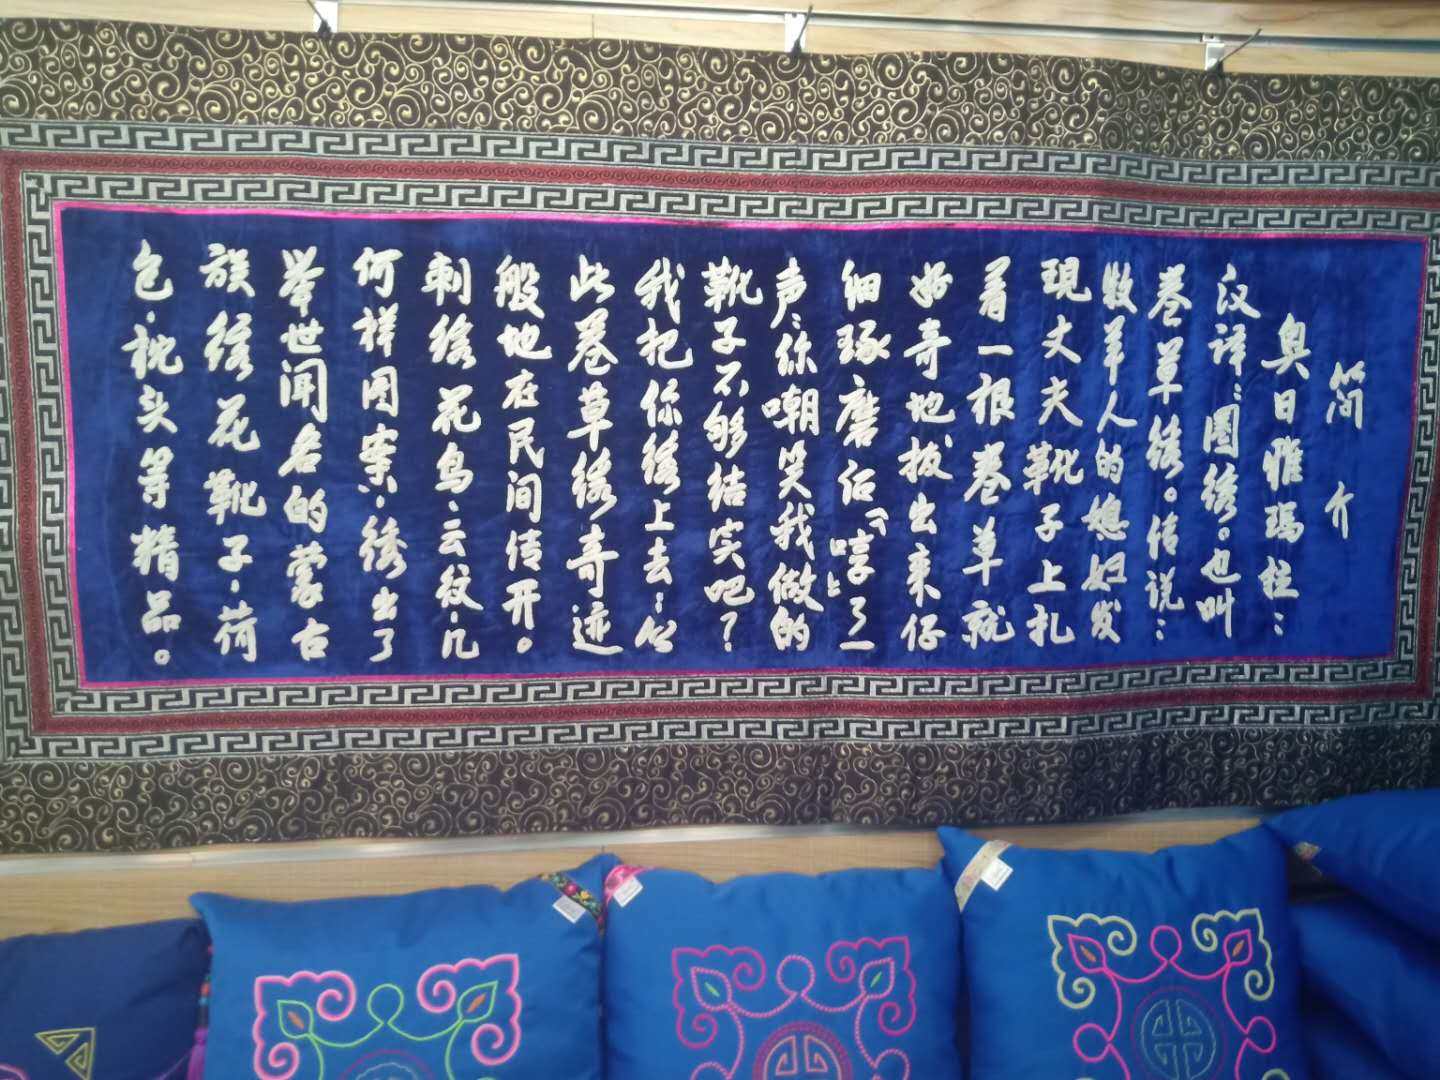 简介
奥日雅玛拉：
汉译：圈绣。也叫
卷草绣。传说：
牧羊人的媳妇发
现丈夫靴子上扎
着一根卷草就
好奇地拔出来仔
细琢磨后“哼了一
声：你嘲笑我做的
靴子不够结实吧？
我把你绣上去；从
此卷草绣奇迹
般地在民间传开。
刺绣花鸟、云纹、几
何样图案、绣出了
举世闻名的蒙古
族绣花靴子、荷
包、枕头等精品。